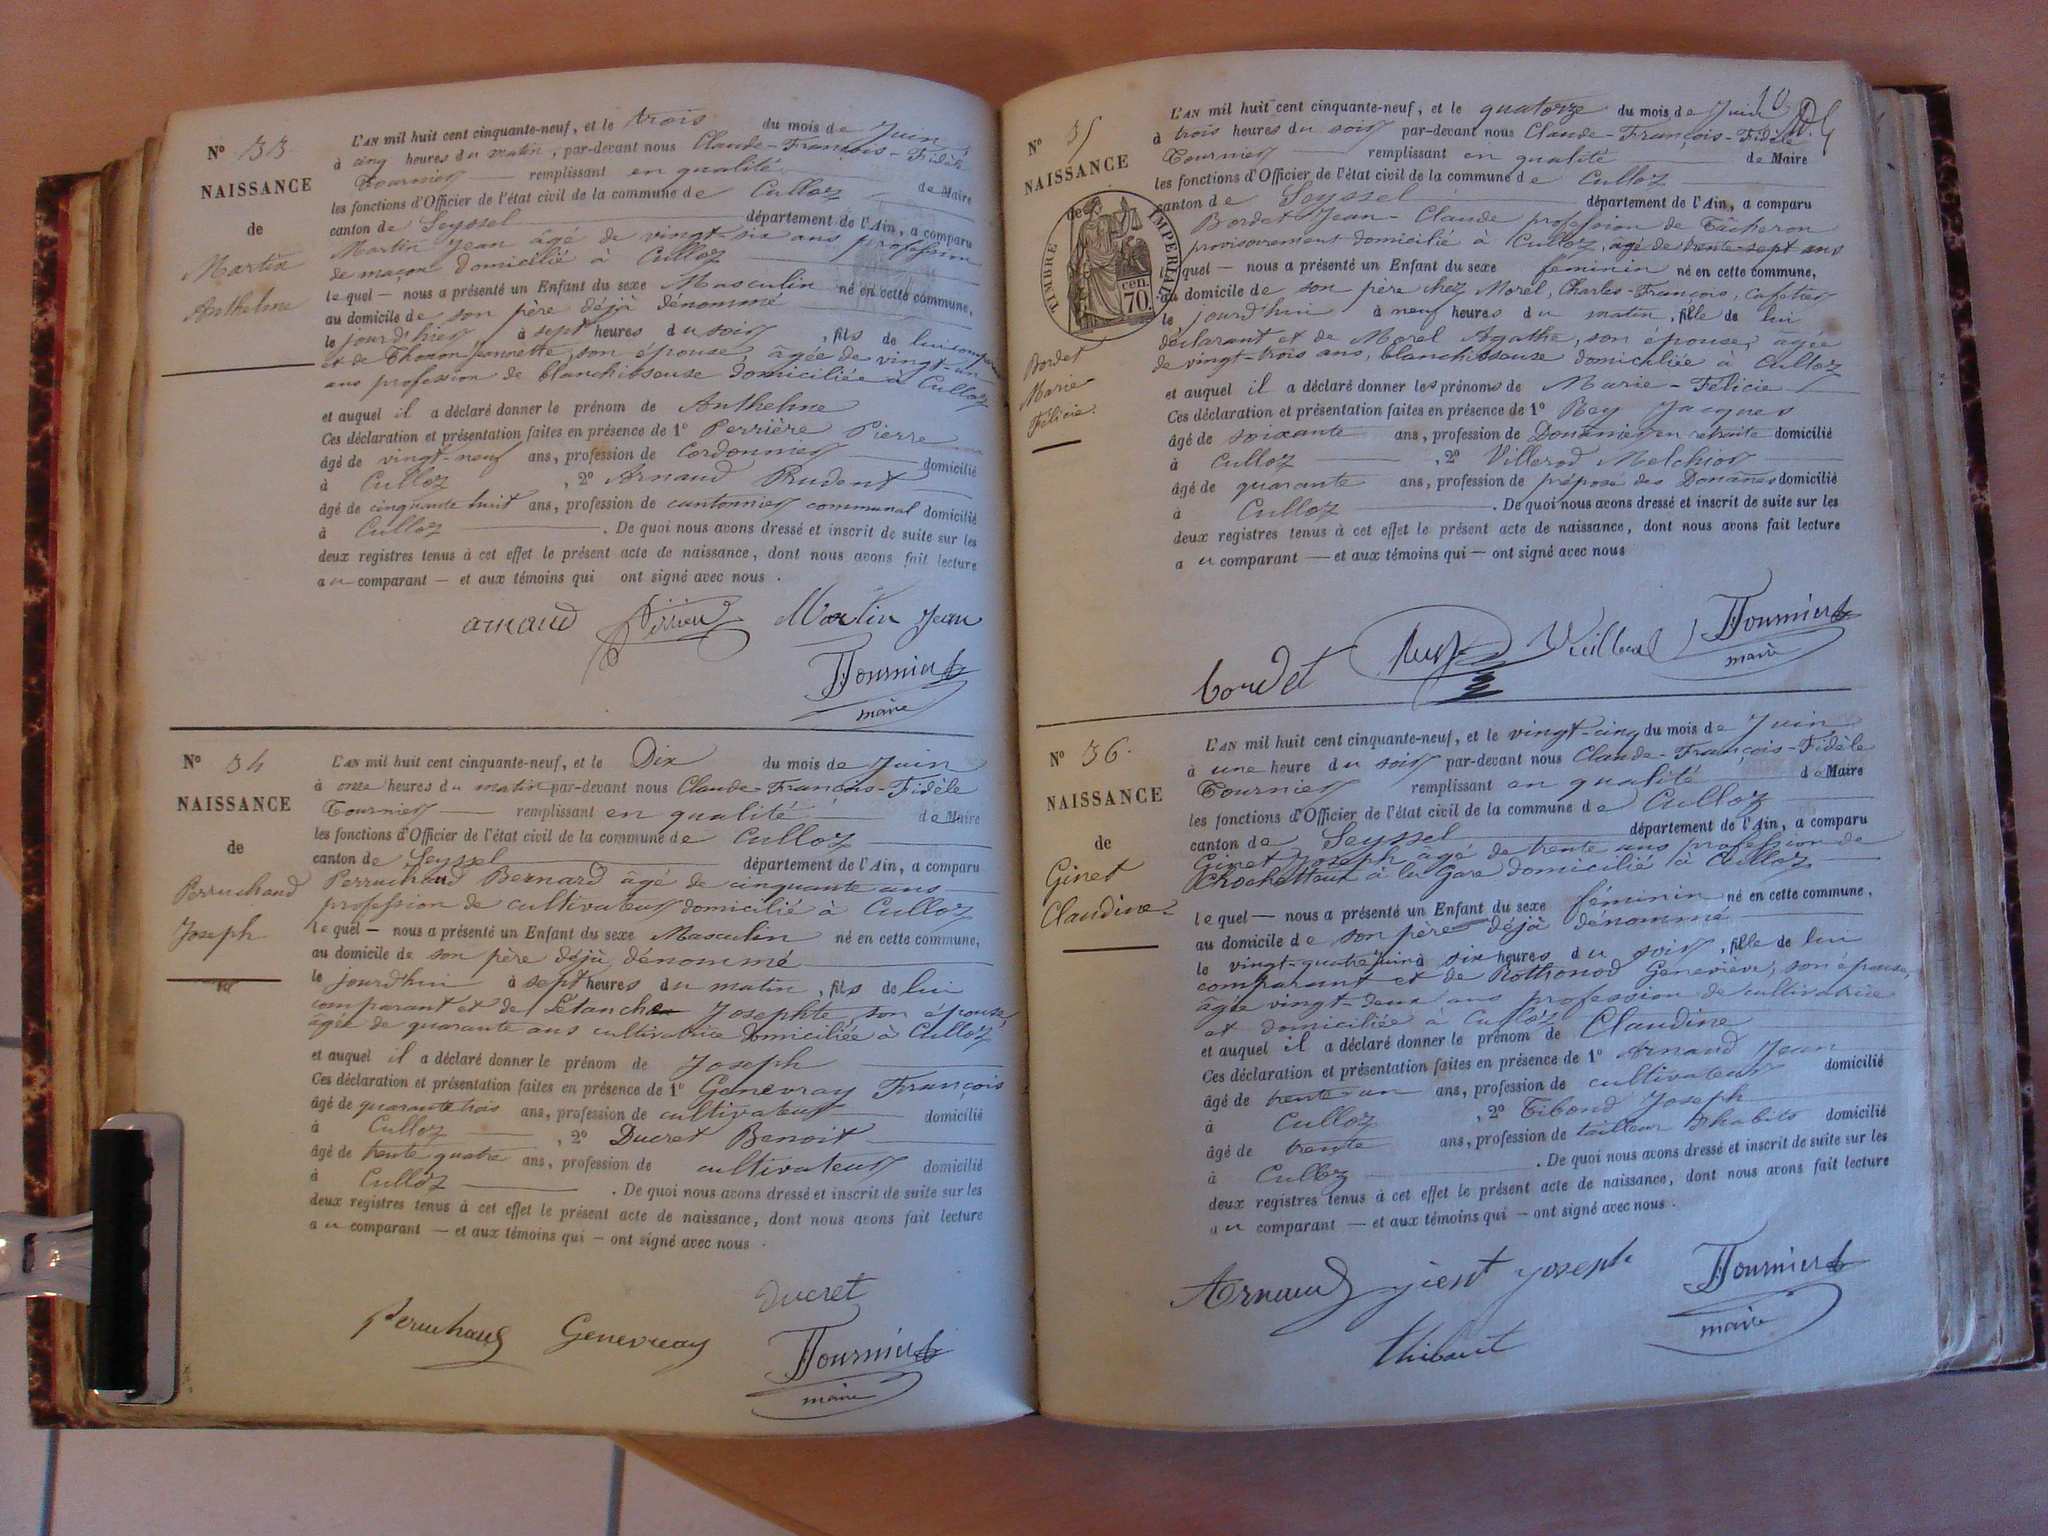 N° 33
NAISSANCE
de
Martin
Anthelme
L'AN mil huit cent cinquante-neuf, et le trois du mois de Juin
à cinq heures du matin, par-devant nous Claude-François-Fidèle
Fournier remplissant en qualité de Maire
les fonctions d'Officier de l'état civil de la commune de Culloz
canton de Seyssel département de l'Ain, a comparu
Martin Jean âgé de vingt-six ans profession
de maçon domicilié à Culloz
lequel — nous a présenté un Enfant du sexe Masculin né en cette commune,
au domicile de son père déjà dénommé
le jour d'hier à sept heures du soir, fils de lui comparant
et de Thonon Jeannette, son épouse, âgée de vingt-un
ans profession de blanchisseuse domiciliée à Culloz
et auquel il a déclaré donner le prénom de Anthelme
Ces déclaration et présentation faites en présence de 1° Perrière Pierre
âgé de vingt-neuf ans, profession de Cordonnier domicilié
à Culloz, 2° Arnaud Prudent
âgé de cinquante huit ans, profession de cantonnier communal domicilié
à Culloz. De quoi nous avons dressé et inscrit de suite sur les
deux registres tenus à cet effet le présent acte de naissance, dont nous avons fait lecture
au comparant — et aux témoins qui ont signé avec nous.
arnaud Martin Jean
Fournier
maire
N° 34
NAISSANCE
de
Perruchaud
Joseph
L'AN mil huit cent cinquante-neuf, et le Dix du mois de Juin
à onze heures du matin par-devant nous Claude-François-Fidèle
Fournier remplissant en qualité de Maire
les fonctions d'Officier de l'état civil de la commune de Culloz
canton de Seyssel département de l'Ain, a comparu
Perruchaud Bernard âgé de cinquante ans
profession de cultivateur domicilié à Culloz
lequel — nous a présenté un Enfant du sexe Masculin né en cette commune,
au domicile de son père déjà dénommé
le jourd'hui à sept heures du matin, fils de lui
comparant et de Létanche Josephte son épouse
âgée de quarante ans cultivatrice domiciliée à Culloz
et auquel il a déclaré donner le prénom de Joseph
Ces déclaration et présentation faites en présence de 1° Genevray François
âgé de quarante trois ans, profession de cultivateur domicilié
à Culloz, 2° Ducret Benoit
âgé de trente quatre ans, profession de cultivateur domicilié
à Culloz. De quoi nous avons dressé et inscrit de suite sur les
deux registres tenus à cet effet le présent acte de naissance, dont nous avons fait lecture
au comparant — et aux témoins qui — ont signé avec nous.
Ducret
Perruchaud Genevray
Fournier
maire
10
N° 35
NAISSANCE
de
TIMBRE IMPERIAL
70 cen.
Bordet
Marie-
Félicie.
L'AN mil huit cent cinquante-neuf, et le quatorze du mois de Juin
à trois heures du soir par-devant nous Claude-François-Fidèle
Fournier remplissant en qualité de Maire
les fonctions d'Officier de l'état civil de la commune de Culloz
canton de Seyssel département de l'Ain, a comparu
Bordet Jean-Claude profession de Tâcheron
provisoirement domicilié à Culloz, âgé de trente-sept ans
lequel — nous a présenté un Enfant du sexe féminin né en cette commune,
au domicile de son père chez Morel, Charles-François, Cafetier
le jourd'hui à neuf heures du matin, fille de lui
déclarant et de Morel Agathe, son épouse, âgée
de vingt-trois ans, blanchisseuse domiciliée à Culloz
et auquel il a déclaré donner les prénoms de Marie-Félicie
Ces déclaration et présentation faites en présence de 1° Rey Jacques
âgé de soixante ans, profession de Douanier en retraite domicilié
à Culloz, 2° Villerod Melchior
âgé de quarante ans, profession de préposé des Douanes domicilié
à Culloz. De quoi nous avons dressé et inscrit de suite sur les
deux registres tenus à cet effet le présent acte de naissance, dont nous avons fait lecture
au comparant — et aux témoins qui — ont signé avec nous
bordet Fournier
maire
N° 36.
NAISSANCE
de
Ginet
Claudine
L'AN mil huit cent cinquante-neuf, et le vingt-cinq du mois de Juin
à une heure du soir par-devant nous Claude-François-Fidèle
Fournier remplissant en qualité de Maire
les fonctions d'Officier de l'état civil de la commune de Culloz
canton de Seyssel département de l'Ain, a comparu
Ginet Joseph âgé de trente ans profession de
à la Gare domicilié à Culloz
lequel — nous a présenté un Enfant du sexe féminin né en cette commune,
au domicile de son père déjà dénommé
le vingt-quatre juin à six heures du soir, fille de lui
comparant et de Rothonod Geneviève, son épouse,
âgée vingt-deux ans profession de cultivatrice
et domiciliée à Culloz
et auquel il a déclaré donner le prénom de Claudine
Ces déclaration et présentation faites en présence de 1° Arnaud Jean
âgé de trente un ans, profession de cultivateur domicilié
à Culloz, 2° Tibond Joseph
âgé de trente ans, profession de tailleur d'habits domicilié
à Culloz. De quoi nous avons dressé et inscrit de suite sur les
deux registres tenus à cet effet le présent acte de naissance, dont nous avons fait lecture
au comparant — et aux témoins qui — ont signé avec nous.
Arnaud joseph Fournier
maire